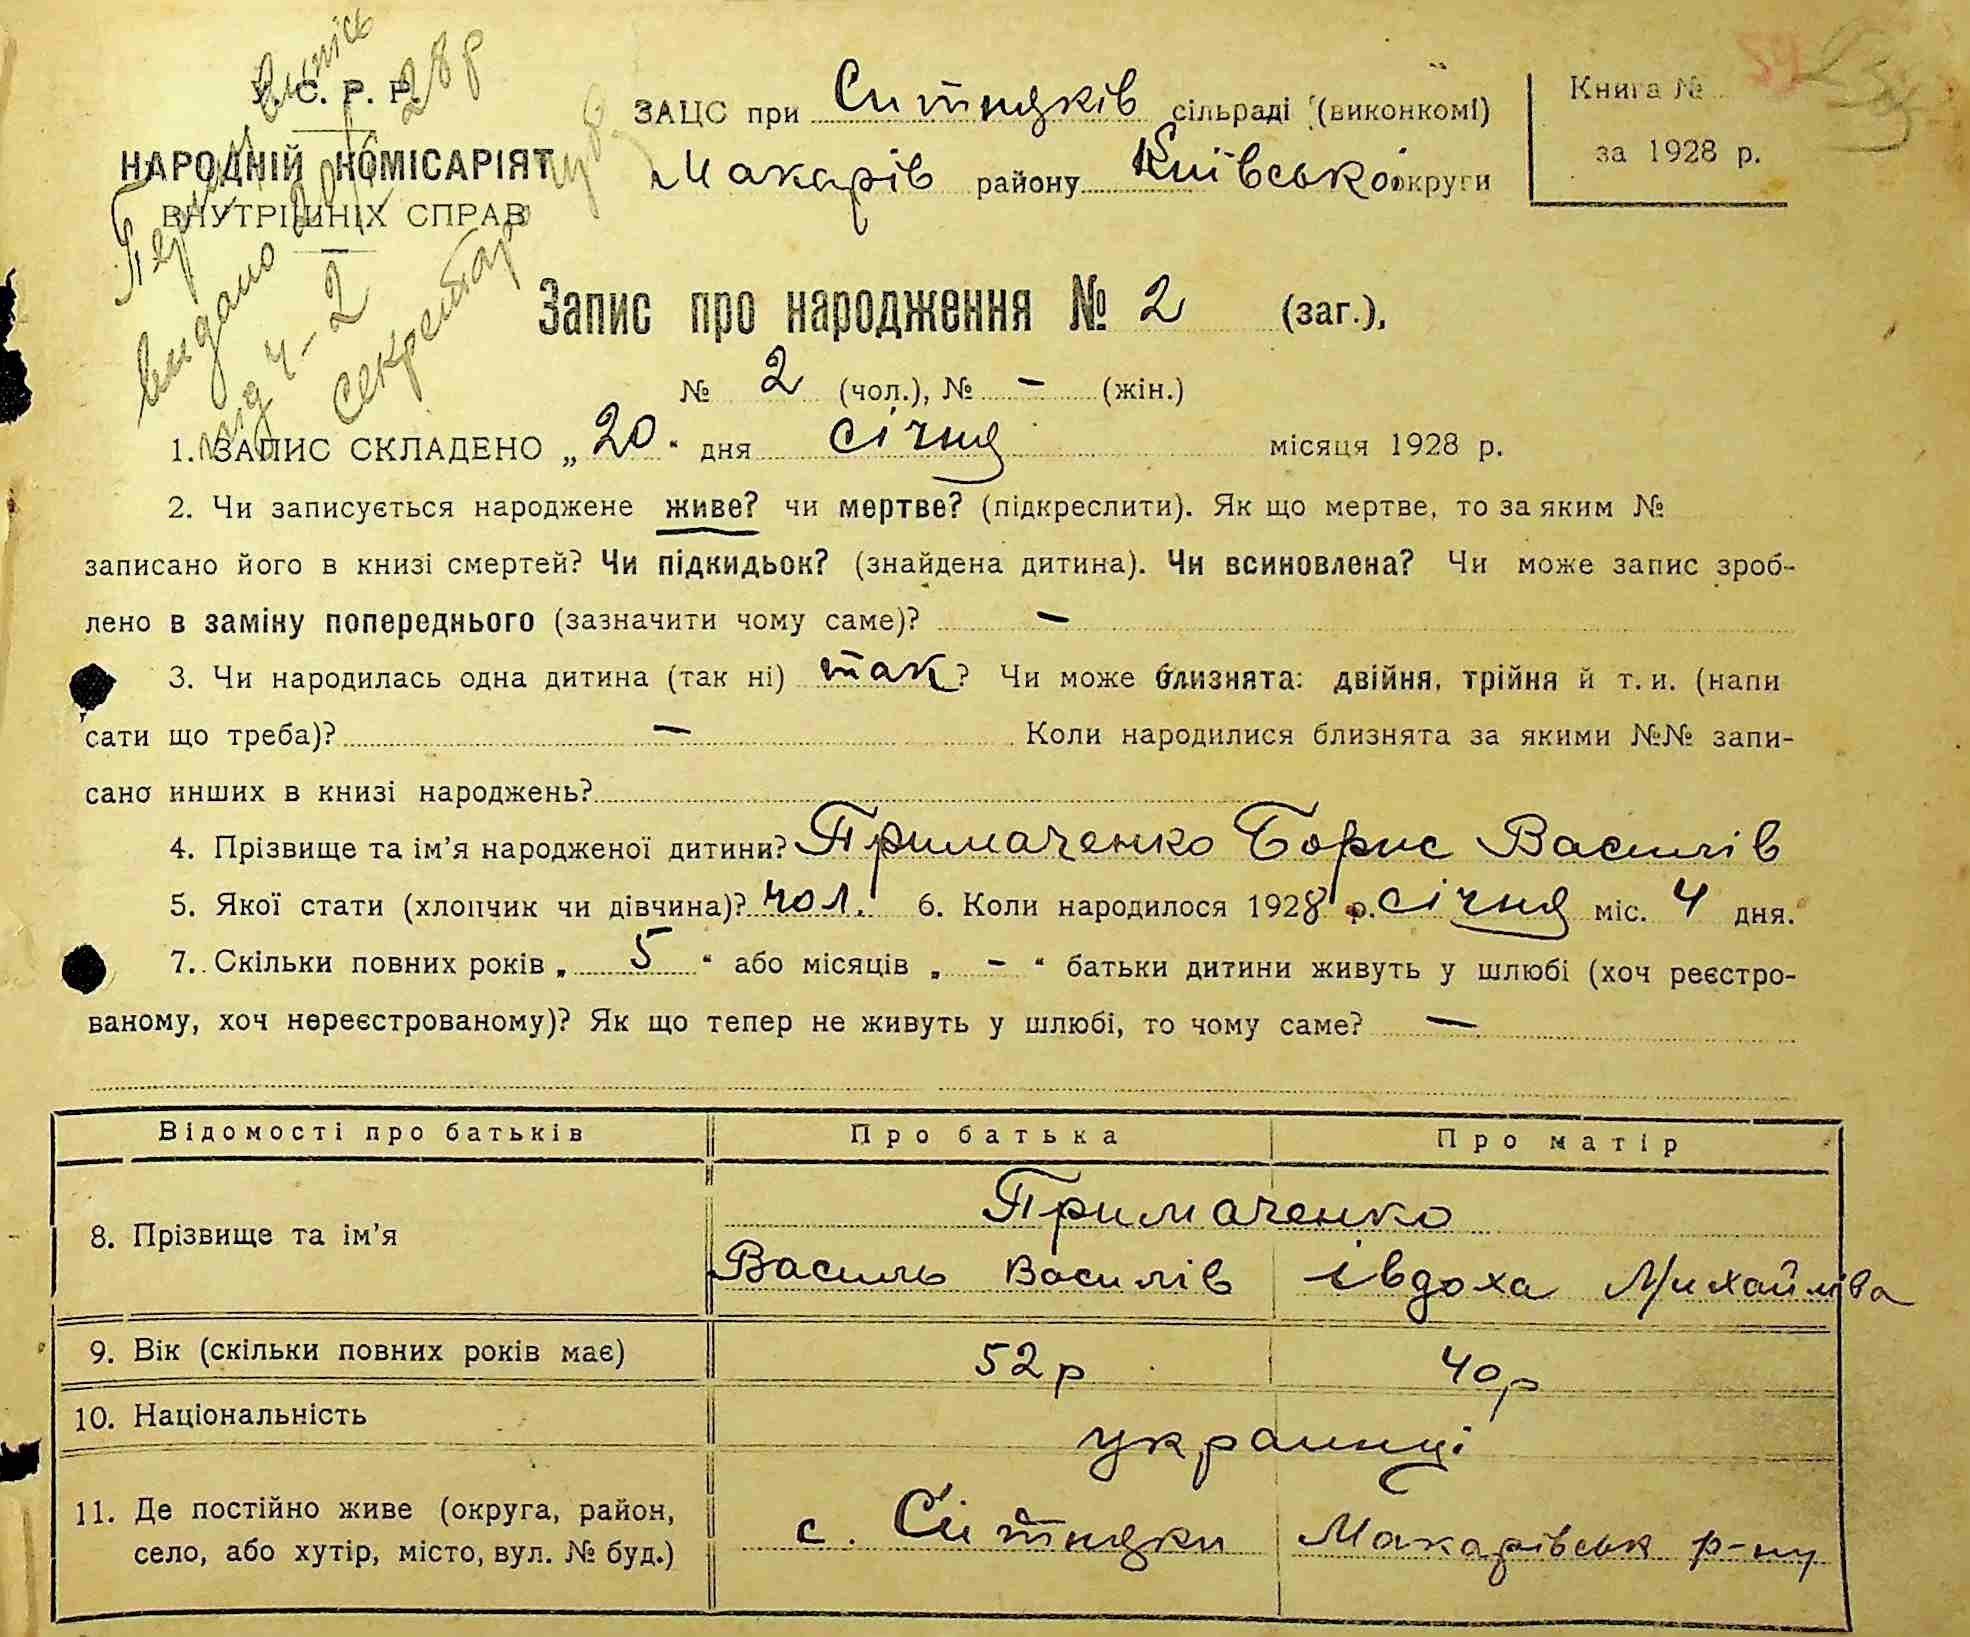 У. С. Р. Р.
НАРОДНІЙ КОМІСАРІЯТ
ВНУТРІШНІХ СПРАВ
випісь
видано
під ч-2
секретар
ЗАЦС при Ситняків сільраді (виконкомі)
Макарів району Київської округи
Книга №
за 1928 р.
Запис про народження № 2 (заг.),
№ 2 (чол.), № – (жін.)
1. ЗАПИС СКЛАДЕНО „20“ дня січня місяця 1928 р.
2. Чи записується народжене живе? чи мертве? (підкреслити). Як що мертве, то за яким №
записано його в книзі смертей? Чи підкидьок? (знайдена дитина). Чи всиновлена? Чи може запис зроб-
лено в заміну попереднього (зазначити чому саме)? –
3. Чи народилась одна дитина (так ні) так? Чи може близнята: двійня, трійня й т. и. (напи
сати що треба)? – Коли народилися близнята за якими №№ запи-
сано инших в книзі народжень?
4. Прізвище та ім'я народженої дитини? Примаченко Борис Василів
5. Якої стати (хлопчик чи дівчина)? чол. 6. Коли народилося 1928 р. січня міс. 4 дня.
7. Скільки повних років „ 5 “ або місяців „ – “ батьки дитини живуть у шлюбі (хоч реєстро-
ваному, хоч нереєстрованому)? Як що тепер не живуть у шлюбі, то чому саме? –
Відомості про батьків Про батька Про матір
8. Прізвище та ім'я Примаченко
Василь Василів Івдоха Михайліва
9. Вік (скільки повних років має) 52 р 40 р
10. Національність українці
11. Де постійно живе (округа, район,
село, або хутір, місто, вул. № буд.) с. Ситняки Макарівськ р-ну